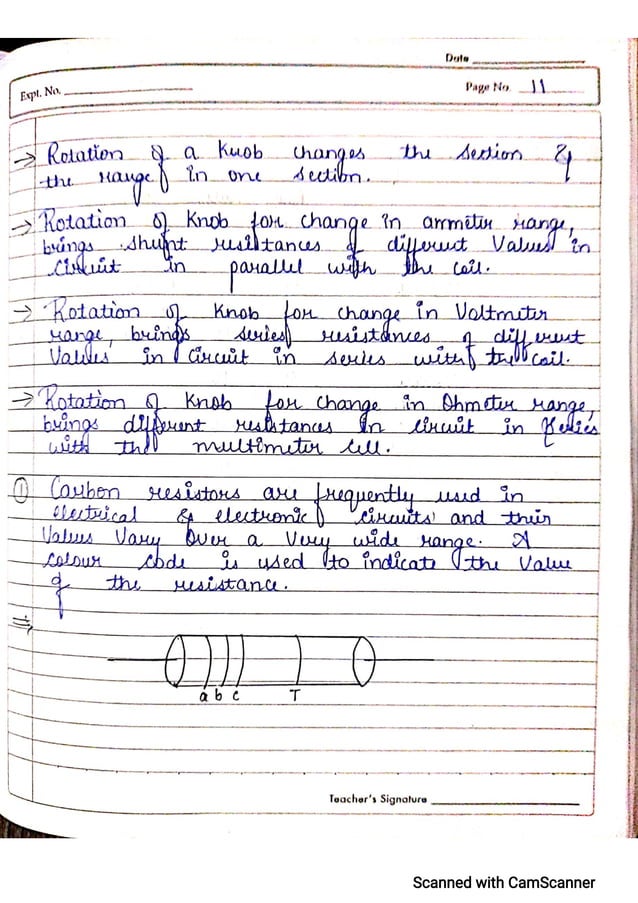 Date
Expt. No.
Page No. 11
→ Rotation of a Knob changes the section &
the range in one section.
→ Rotation of Knob for change in ammeter range,
brings shunt resistances of different Values in
circuit in parallel with the coil.
→ Rotation of Knob for change in Voltmeter
range, brings series resistances of different
Values in circuit in series with the coil.
→ Rotation of Knob for change in Ohmeter range,
brings different resistances in circuit in series
with the multimeter cell.
① Carbon resistors are frequently used in
electrical & electronic circuits and their
Values Vary over a Very wide range. A
colour code is used to indicate the Value
of the resistance.
⇒
a b c T
Teacher's Signature
Scanned with CamScanner